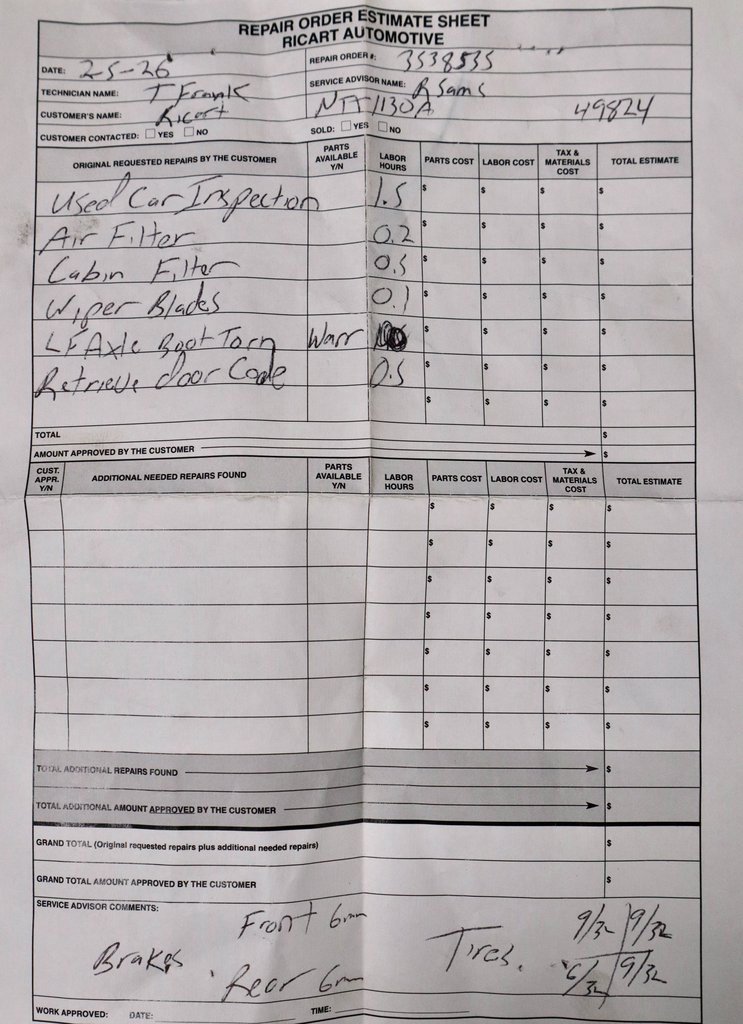 REPAIR ORDER ESTIMATE SHEET
RICART AUTOMOTIVE
DATE: 2-5-26 REPAIR ORDER #: 3538535
TECHNICIAN NAME: T Frank SERVICE ADVISOR NAME: R Sams
CUSTOMER'S NAME: Ricart 49824
CUSTOMER CONTACTED: YES NO SOLD: YES NO
ORIGINAL REQUESTED REPAIRS BY THE CUSTOMER PARTS AVAILABLE Y/N LABOR HOURS PARTS COST LABOR COST TAX & MATERIALS COST TOTAL ESTIMATE
Used Car Inspection 1.5 $ $ $ $
Air Filter 0.2 $ $ $ $
Cabin Filter 0.5 $ $ $ $
Wiper Blades 0.1 $ $ $ $
LF Axle Boot Torn Warr $ $ $ $
Retrieve door Code 0.5 $ $ $ $
$ $ $ $
TOTAL $
AMOUNT APPROVED BY THE CUSTOMER $
CUST. APPR. Y/N ADDITIONAL NEEDED REPAIRS FOUND PARTS AVAILABLE Y/N LABOR HOURS PARTS COST LABOR COST TAX & MATERIALS COST TOTAL ESTIMATE
$ $ $ $
$ $ $ $
$ $ $ $
$ $ $ $
$ $ $ $
$ $ $ $
$ $ $ $
TOTAL ADDITIONAL REPAIRS FOUND $
TOTAL ADDITIONAL AMOUNT APPROVED BY THE CUSTOMER $
GRAND TOTAL (Original requested repairs plus additional needed repairs) $
GRAND TOTAL AMOUNT APPROVED BY THE CUSTOMER $
SERVICE ADVISOR COMMENTS:
Front 6mm 9/32 9/32
Brakes Tires
Rear 6mm 6/32 9/32
WORK APPROVED: DATE: TIME: